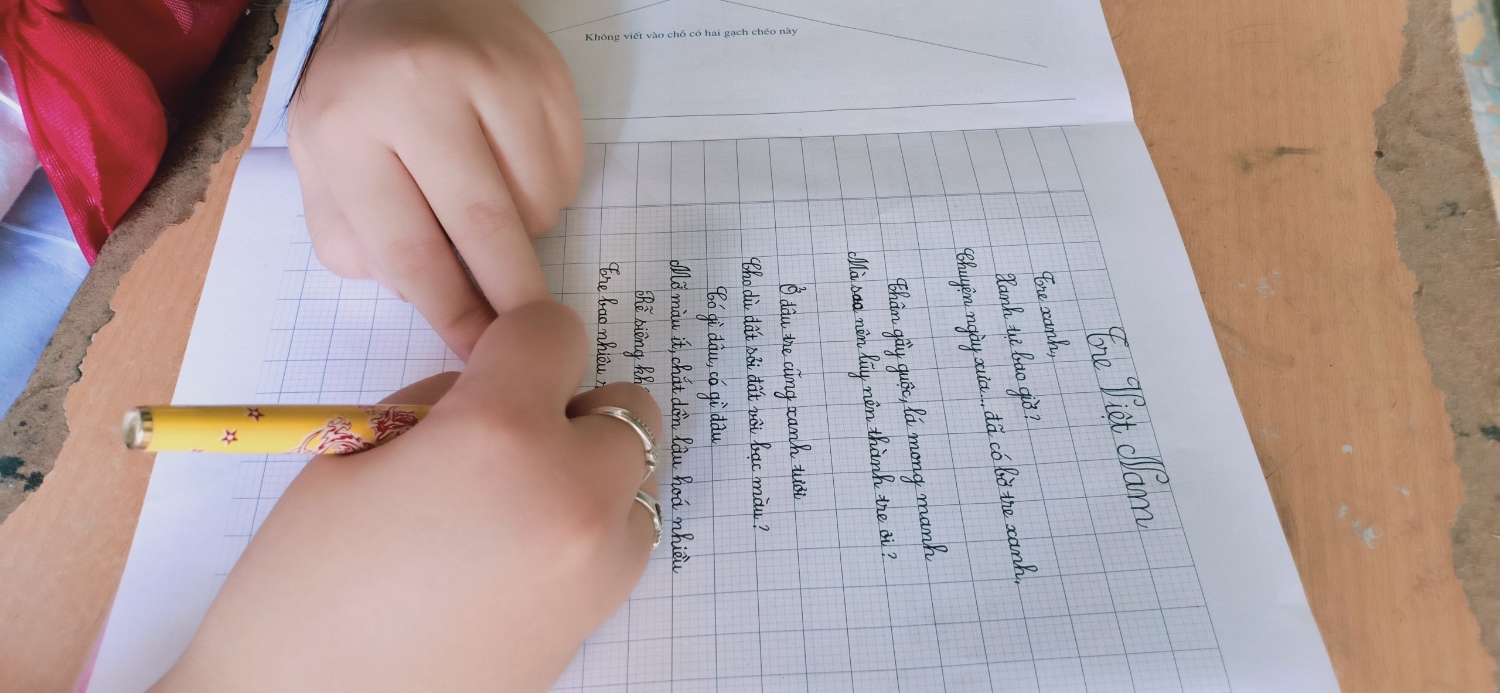 Không viết vào chỗ có hai gạch chéo này
Tre Việt Nam
Tre xanh,
Xanh tự bao giờ?
Chuyện ngày xưa... đã có bờ tre xanh,
Thân gầy guộc, lá mong manh
Mà sao nên lũy nên thành tre ơi?
Ở đâu tre cũng xanh tươi
Cho dù đất sỏi đất vôi bạc màu?
Có gì đâu, có gì đâu
Mỡ màu ít, chắt dồn lâu hoá nhiều
Rễ siêng
Tre bao nhiêu